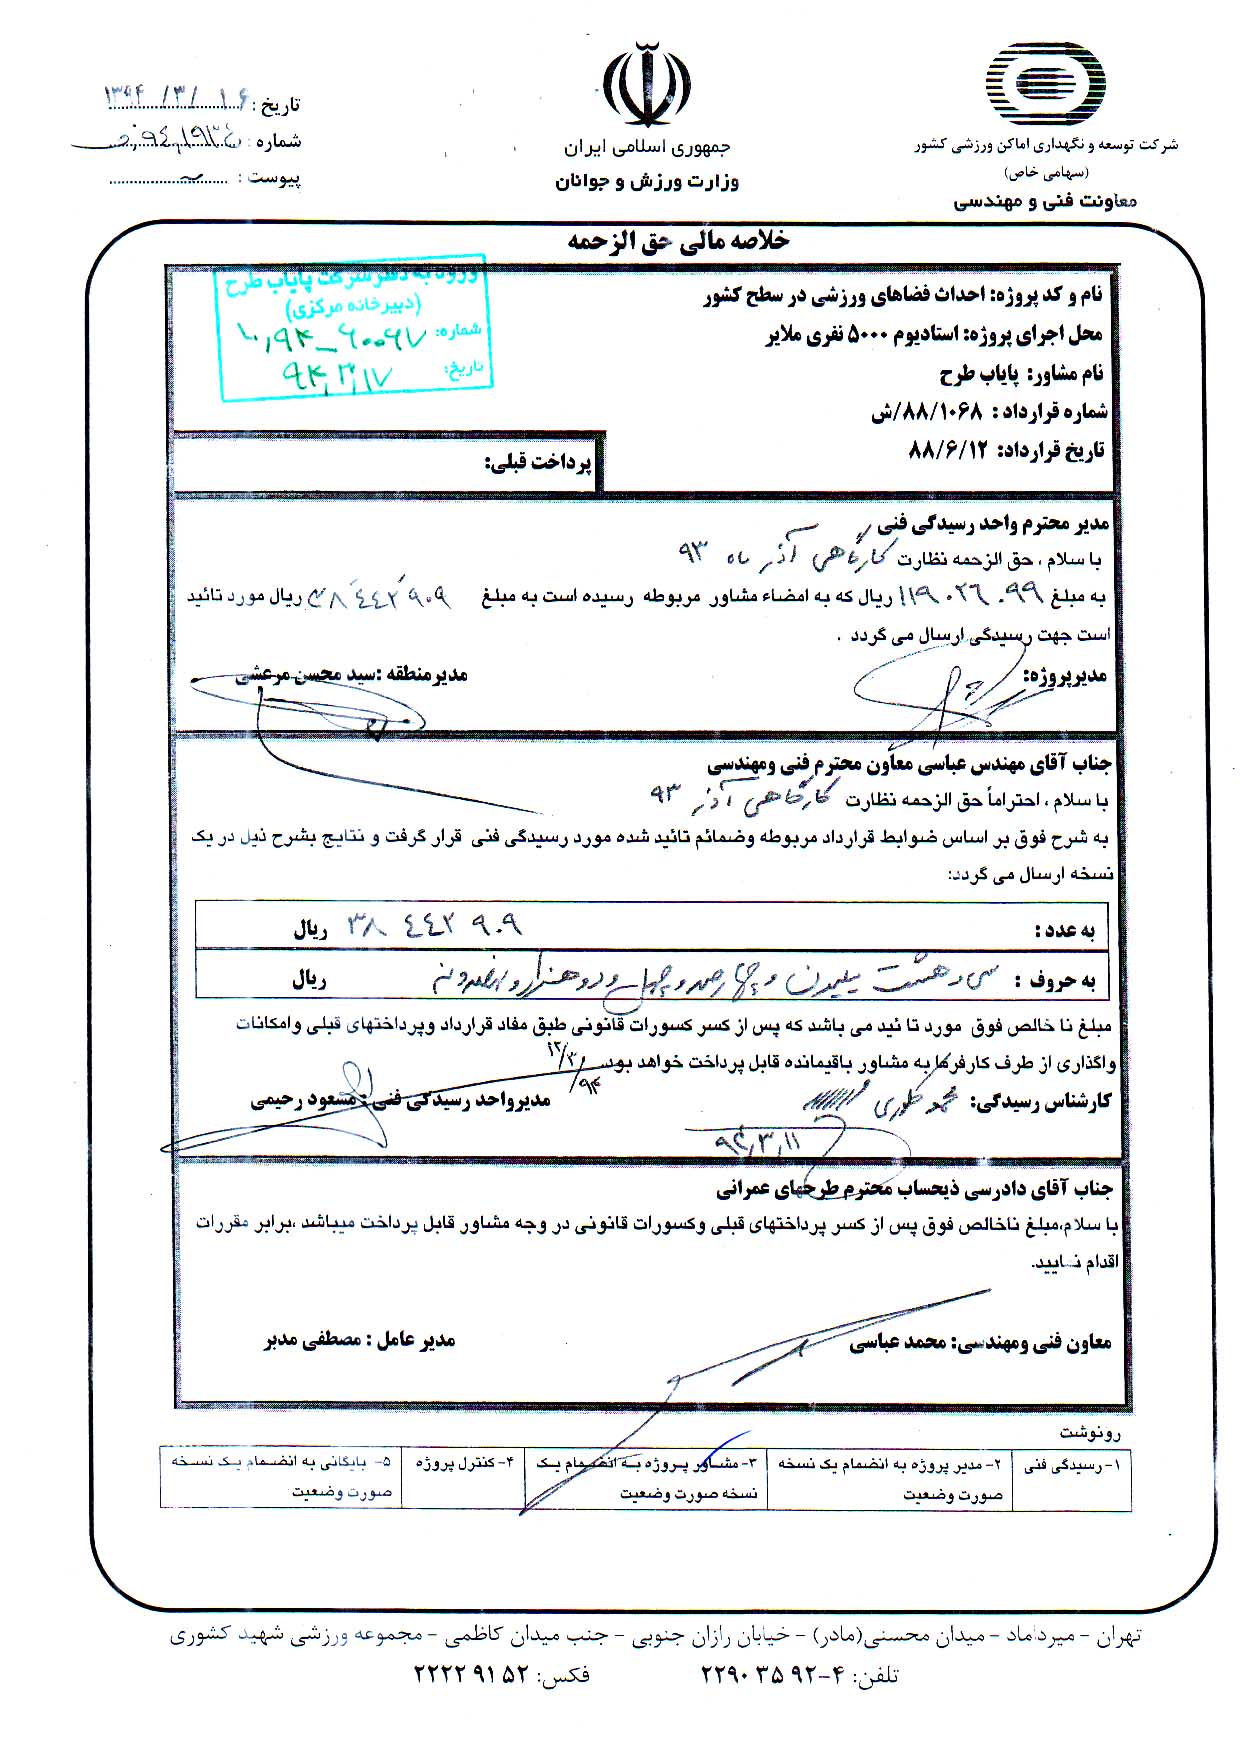 شرکت توسعه و نگهداری اماکن ورزشی کشور
(سهامی خاص)
معاونت فنی و مهندسی
جمهوری اسلامی ایران
وزارت ورزش و جوانان
تاریخ : ۱۳۹۴/۳/۱۶
شماره :
پیوست :
خلاصه مالی حق الزحمه
ورود به دفتر شرکت پایاب طرح
(دبیرخانه مرکزی)
شماره: ۱۰,۹۴_۶۰۰۶۷
تاریخ: ۹۴,۳,۱۷
نام و کد پروژه: احداث فضاهای ورزشی در سطح کشور
محل اجرای پروژه: استادیوم ۵۰۰۰ نفری ملایر
نام مشاور: پایاب طرح
شماره قرارداد : ۸۸/۱۰۶۸/ش
تاریخ قرارداد: ۸۸/۶/۱۲
پرداخت قبلی:
مدیر محترم واحد رسیدگی فنی
با سلام ، حق الزحمه نظارت کارگاهی آذر ماه ۹۳
به مبلغ ۱۱۹۰۲۶۰۹۹ ریال که به امضاء مشاور مربوطه رسیده است به مبلغ ۳۸۴۴۲۹۰۹ ریال مورد تائید
است جهت رسیدگی ارسال می گردد .
مدیرپروژه:
مدیرمنطقه :سید محسن مرعشی
جناب آقای مهندس عباسی معاون محترم فنی ومهندسی
با سلام ، احتراماً حق الزحمه نظارت کارگاهی آذر ۹۳
به شرح فوق بر اساس ضوابط قرارداد مربوطه وضمائم تائید شده مورد رسیدگی فنی قرار گرفت و نتایج بشرح ذیل در یک
نسخه ارسال می گردد:
به عدد : ۳۸ ۴۴۲ ۹۰۹ ریال
به حروف : سی و هشت میلیون و چهارصد و چهل و دو هزار و نهصد و نه ریال
مبلغ نا خالص فوق مورد تا ئید می باشد که پس از کسر کسورات قانونی طبق مفاد قرارداد وپرداختهای قبلی وامکانات
واگذاری از طرف کارفرما به مشاور باقیمانده قابل پرداخت خواهد بود.
۹۴/۳/۱۲
کارشناس رسیدگی: محمد
مدیرواحد رسیدگی فنی : مسعود رحیمی
۹۴,۳,۱۱
جناب آقای دادرسی ذیحساب محترم طرحهای عمرانی
با سلام،مبلغ ناخالص فوق پس از کسر پرداختهای قبلی وکسورات قانونی در وجه مشاور قابل پرداخت میباشد ،برابر مقررات
اقدام نمایید.
معاون فنی ومهندسی: محمد عباسی
مدیر عامل : مصطفی مدبر
رونوشت
۱-رسیدگی فنی
۲-مدیر پروژه به انضمام یک نسخه
صورت وضعیت
۳-مشاور پروژه به انضمام یک
نسخه صورت وضعیت
۴-کنترل پروژه
۵- بایگانی به انضمام یک نسخه
صورت وضعیت
تهران - میرداماد - میدان محسنی(مادر) - خیابان رازان جنوبی - جنب میدان کاظمی - مجموعه ورزشی شهید کشوری
تلفن: ۴-۲۲۹۰۳۵۹۲ فکس: ۲۲۲۲۹۱۵۲